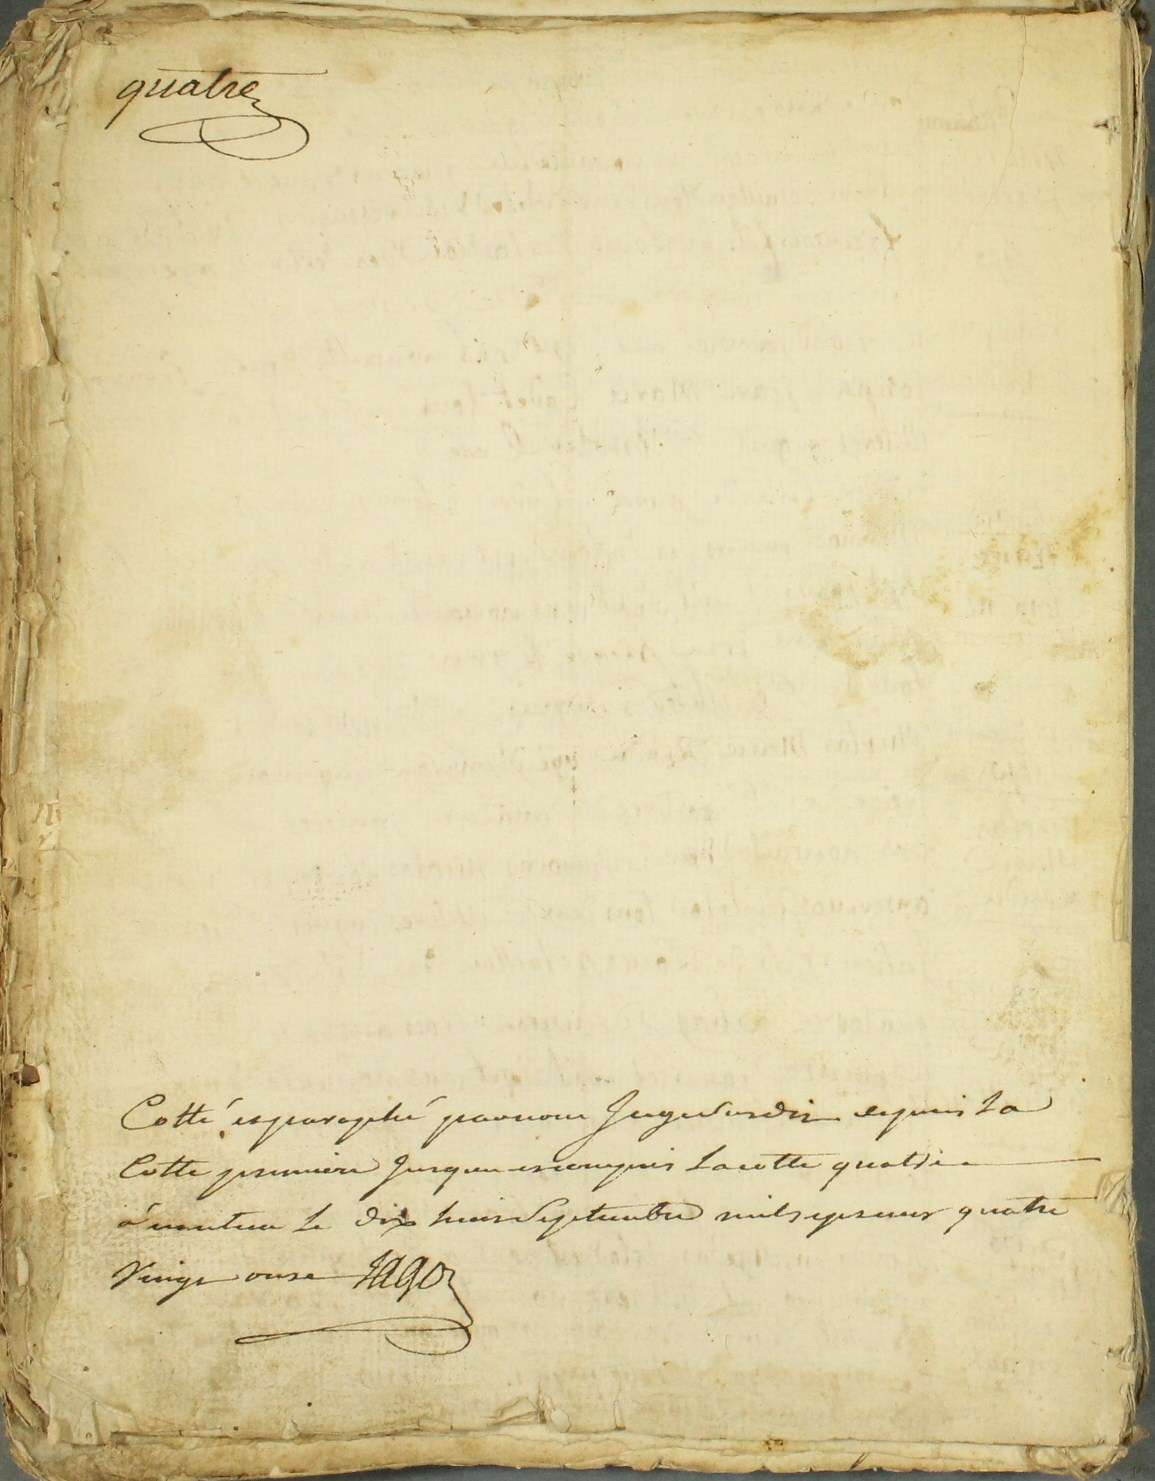 quatre
Cotté et paraphé par nous Juge susdit depuis La
Cotte premiere Jusques et compris La cotte quatre
à le dix huit Septembre mil sept cent quatre
Vingt onze Jago